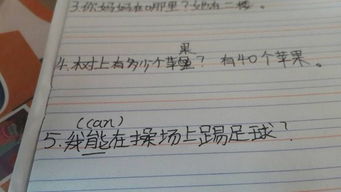 3.你妈妈在哪里？她在二楼。
果
4.木对上有多少个苹？有40个苹果。
(can)
5.我能在操场上踢足球？